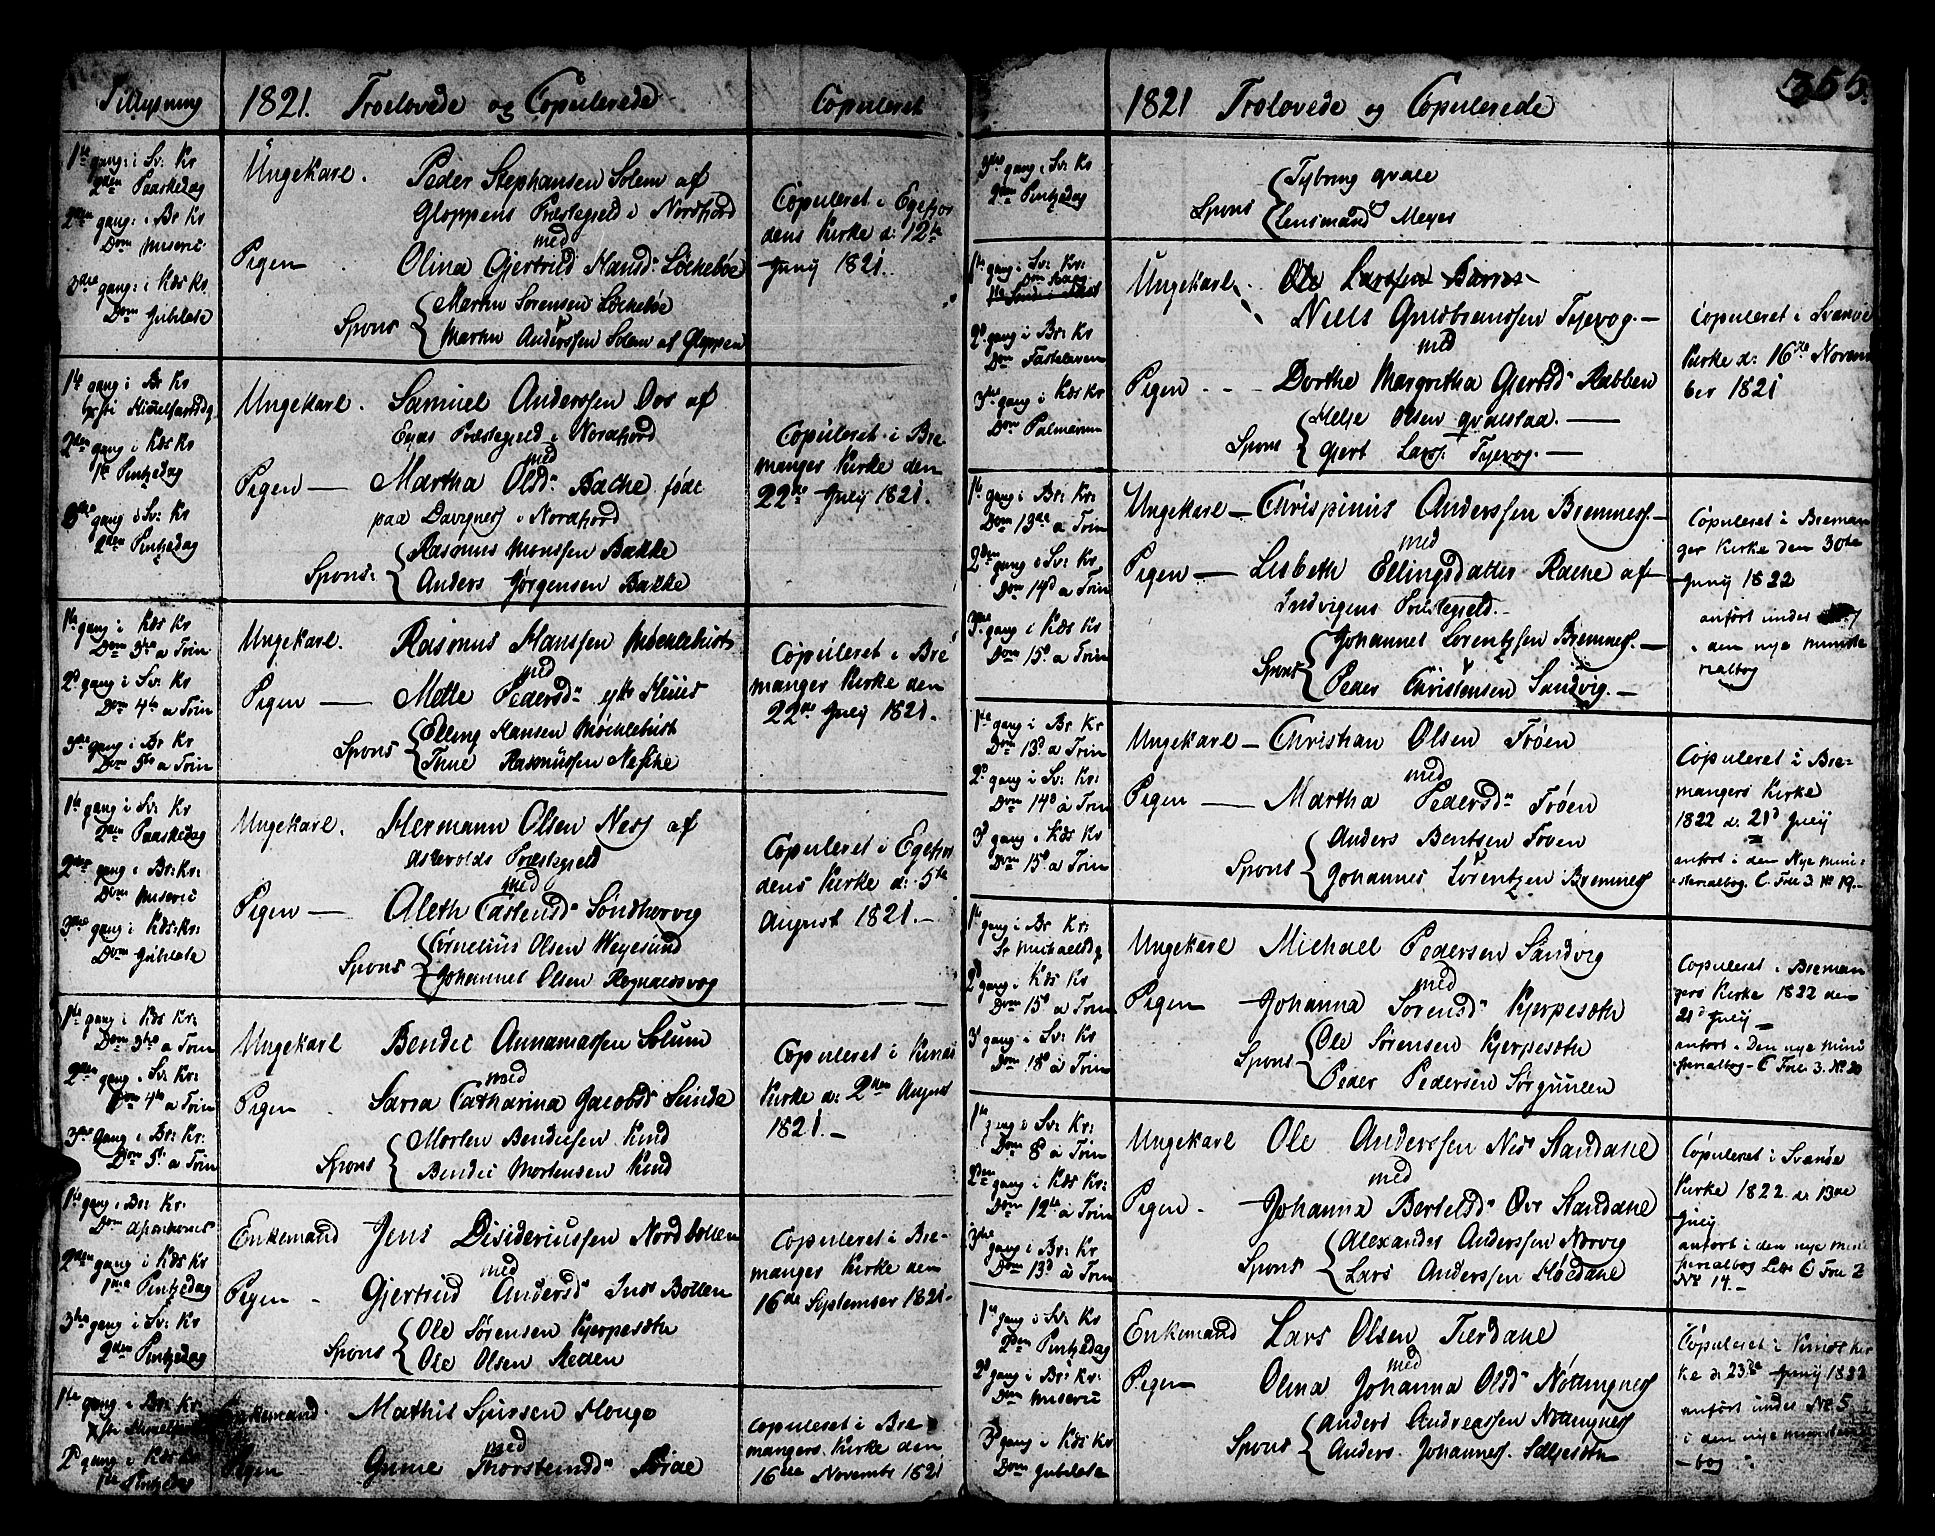 Tillysning
1821. Troelovede og Copulerede
Copuleret
1te gang: i Sv: Kr
2den Paaskedag
2den gang: i Br Kr
Dom Miseric
3die gang: i Kds Kr
Dom Jubilate
Ungekarl. Peder Stephansen Solem af
Gloppens Præstegield i Nordfiord
med
Pigen Olina Giertrud Hansd: Löckeböe
Spons Martin Sörensen Löckeböe
Martin Anderssen Solem af Gloppen
Copuleret i Egefior
dens Kirke d: 12te
Juny 1821.
1te gang i Br Kr
Christi Himmelfartsdg
2den gang i Kds Kr
1te Pintzedag
3die gang i Sv: Kr
2den Pintzedag
Ungekarl. Samuel Anderssen Oos af
Eyds Præstegield i Nordfiord
med
Pigen — Martha Olsd: Backe födt
paa Davignes i Nordfiord
Spons: Rasmus Monssen Bakke
Anders Jørgensen Bakke
Copuleret i Bre
manger Kirke den
22de July 1821.
1te gang i Kds Kr
Dom 3tio a Trin
2d gang i Sv: Kr
Dom 4to a Trin
3die gang i Br Kr
Dom 5to a Trin
Ungekarl. Rasmus Hanssen Møcklebust
med
Pigen — Mette Pedersd:
Spons Elling Hansen Møcklebust
Thue Rasmussen Neshe
Copuleret i Bre
manger Kirke den
22de July 1821.
1te gang i Sv: Kr
2den Paaskedag
2den gang i Br: Kr:
Dom Miseric
3die gang i Kds: Kr:
Dom Jubilate
Ungekarl. Hermann Olsen Ness af
Askevolds Præstegield
med
Pigen — Aleth Castensd: Söndhervig
Spons Cornelius Olsen Weyesund
Johannes Olsen Rognaldsvog
Copuleret i Egefior
dens Kirke d: 5te
August 1821.—
1te gang i Kds Kr:
Dom 3tio a Trin
2den gang i Sv: Kr:
Dom 4to a Trin
3die Gang i Br: Kr:
Dom 5to a Trin
Ungekarl Bendic Annaniassen Solum
med
Pigen Sarra Catharina Jacobsd
Spons Morten Bendicsen Kind
Bendic Mortensen Kind
Copuleret i Kinds
Kirke d: 2den August
1821.—
1te gang i Br: Kr:
2den gang i Kds Kr
1ste Pintzedag
3die gang i Sv: Kr
2den Pintzedag
Enkemand Jens Disideriussen Nordbotten
med
Pigen Giertrud Andersd: Indr Botten
Spons Ole Sörensen Kierpeseth
Ole Olsen Steden
Copuleret i Bre-
manger Kirke den
16de September 1821.
1te gang i Br: Kr
2d gang i Kds Kr
1te Pintzdag
Enkemand. Mathis Spirssen Hougo
med
Pigen Gunne Thorsteinsd:
Copuleret i Bre
mangers Kirke den
16de Novembr 1821
355.
1821 Trolovede og Copulerede
3die gang i Sv: Kr
2den Pintzedag
Spons Tybring qvale
og
Lensmand Meyer
1te gang i Sv: Kr:
2d gang i Br: Kr
Dom Fastelaven
3die gang i Kds Kr
Dom Palmarum
Ungekarl. Ole Larssen Barnes
Niels Gulbranssen Tyevog.—
med
Pigen Dorthe Margretha Giertsd: Rabben
Spons Helje Olsen qvalstaa.—
Giert Larss: Tyevog.—
Copuleret i Svanöe
Kirke d: 16de Novem
ber 1821
1te gang i Br: Kr:
Dom 13de a Trin
2den gang i Sv: Kr
Dom 14d a Trin
3die gang i Kds Kr
Dom 15d a Trin
Ungekarl — Chrispinus Anderssen Bremnes.—
med
Pigen — Lisbeth Ellingsdatter Racke af
Indvigens Præstegield.—
Spons Johannes Lorentzsen Bremnes.—
Peder Christensen Sandvig.—
Copuleret i Breman
ger Kirke den 30te
Juny 1822
anfört under
i den nye Ministe
rialbog
1te gang i Br Kr
Dom 13d a Trin
2d gang i Sv: Kr:
Dom 14d a Trin
3d gang i Kds Kr
Dom 15d a Trin
Ungekarl — Christian Olsen Tröen
med
Pigen — Martha Pedersd: Tröen
Spons Anders Bentsen Tröen
Johannes Lorentzen Bremnes
Copuleret i Bre-
mangers Kirke
1822 d: 21d July
anfört i den Nye Mini-
sterialbog. C. Foll 3. No 19.—
1te gang i Br Kr:
St Michaelsdg
2d gang i Kds Kr
Dom 15d a Trin
3d gang i Sv: Kr
Dom 18d a Trin
Ungekarl Michael Pedersen Sandvig
med
Pigen Johanna Sörensd: Kierpeseth
Spons Ole Sörensen Kierpeseth
Peder Pedersen Sörguulen
Copuleret i Breman
gers Kirke 1822 den
21d July —
anfört i Den nye Mini
sterialbog - C Foll 3. No 20
1te gang i Sv: Kr:
Dom 8 a Trin
2den gang i Kds Kr:
Dom 12te a Trin
3die gang i Br: Kr
Dom 13d a Trin
Ungekarl Ole Anderssen Ned Standahl
med
Pigen. Johanna Bertelsd: Ovr Standahl
Spons Alexander Anderssen Norvig
Lars Anderssen Höedahl
Copuleret i Svanöe
Kirke 1822 d: 13de
July
anfört i den nye Mini
sterialbog Litr C Foll 2
No 14.—
1te gang i Sv: Kr
2den Pintzedag
2d gang i Br: Kr:
Dom Miseric
3d gang i Kds Kr
Dom Jubilate
Enkemand Lars Olsen Tierdahl
med
Pigen Olina Johanna Olsd: Nötangnes
Spons Anders Andreassen Nötangnes
Anders Johannes. Selljeseth
Copuleret i Kinds Kir
ke d: 23de Juny 1822
anfört under No 5
i den nye Minister
- bog